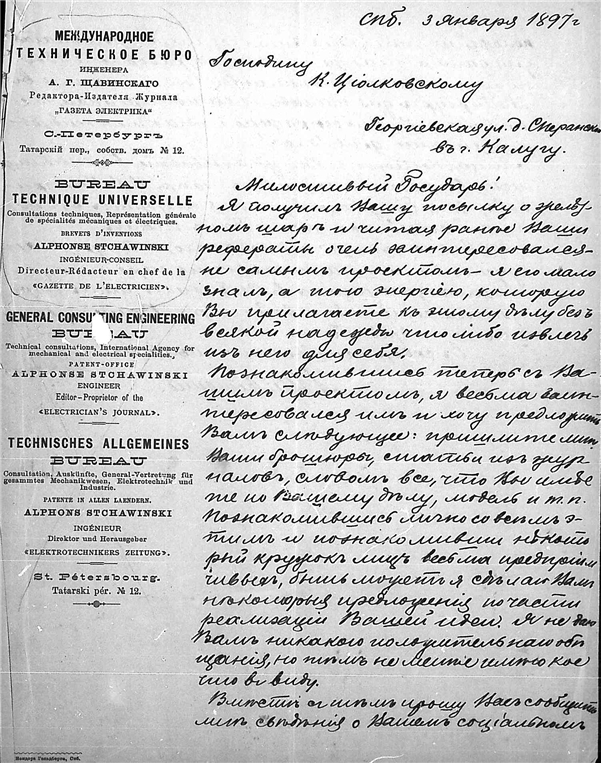 МЕЖДУНАРОДНОЕ
ТЕХНИЧЕСКОЕ БЮРО
ИНЖЕНЕРА
А. Г. ЩАВИНСКАГО
Редактора-Издателя Журнала
„ГАЗЕТА ЭЛЕКТРИКА“
С.-Петербургъ
Татарскій пер., собств. домъ № 12.
BUREAU
TECHNIQUE UNIVERSELLE
Consultations techniques, Représentation générale
de spécialités mécaniques et électriques.
BREVETS D'INVENTIONS
ALPHONSE STCHAWINSKI
INGÉNIEUR-CONSEIL
Directeur-Rédacteur en chef de la
«GAZETTE DE L'ELECTRICIEN».
GENERAL CONSULTING ENGINEERING
BUREAU
Technical consultations, International Agency for
mechanical and electrical specialities.
PATENT-OFFICE
ALPHONSE STCHAWINSKI
ENGINEER
Editor-Proprietor of the
«ELECTRICIAN'S JOURNAL».
TECHNISCHES ALLGEMEINES
BUREAU
Consultation, Auskünfte, General-Vertretung für
gesammtes Mechanikwesen, Elektrotechnik und
Industrie.
PATENTE IN ALLEN LAENDERN.
ALPHONS STCHAWINSKI
INGÉNIEUR
Direktor und Herausgeber
«ELEKTROTECHNIKERS ZEITUNG».
St. Pétersbourg.
Tatarski pér. № 12.
Спб. 3 Января 1897 г
Господину
К. Ціолковскому
Георгіевская ул. д. Сперанск
въ г. Калугу.
Милостивый Государь!
Я получилъ Вашу посылку о
номъ шарѣ и читая ранѣе Ваши
рефераты очень заинтересовался
не самымъ проектомъ – я его мало
зналъ, а тою энергіею, которую
Вы прилагаете къ этому дѣлу безъ
всякой надежды что либо извлечь
изъ него для себя.
Познакомившись теперь съ Ва-
шимъ проектомъ, я весьма заин-
тересовался имъ и хочу предложить
Вамъ слѣдующее: пришлите мнѣ
Ваши брошюры, статьи изъ жур
наловъ, словомъ все, что Вы имѣе
те по Вашему дѣлу, модель и т. п.
Познакомившись лично со всѣмъ э-
тимъ и познакомивши нѣкото
рый кружокъ лицъ весьма предпріим
чивыхъ, быть можетъ я сдѣлаю Вамъ
нѣкоторыя предложенія по части
реализаціи Вашей идеи. Я не даю
Вамъ никакого положительнаго обѣ
щанія, но тѣмъ не менѣе имѣю кое
что въ виду.
Вмѣстѣ съ тѣмъ прошу Васъ сообщить
мнѣ свѣдѣнія о Вашемъ соціальномъ